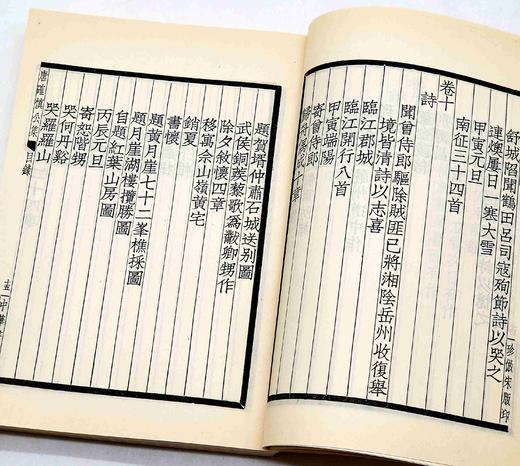 珍倣宋版印
舒城陷聞鶴田呂司寇殉節詩以哭之
連燠日一寒大雪
甲寅元旦
南征三十四首
卷十
詩
聞曾侍郎驅除賊匪已將湘陰岳州收復舉
境皆清詩以志喜
臨江郡城
臨江開行八首
甲寅端陽
寄曾侍郎
題賀塔仲肅石城送別圖
武侯銅蒺藜歌爲黻卿甥作
除夕敘懷四章
移寓佘山嶺黃宅
銷夏
書懷
題黃月崖七十二峯樵採圖
題月崖湖樓攬勝圖
自題紅葉山房圖
丙辰元旦
寄恕階甥
哭何丹谿
哭羅羅山
唐確慎公集 目錄 中華